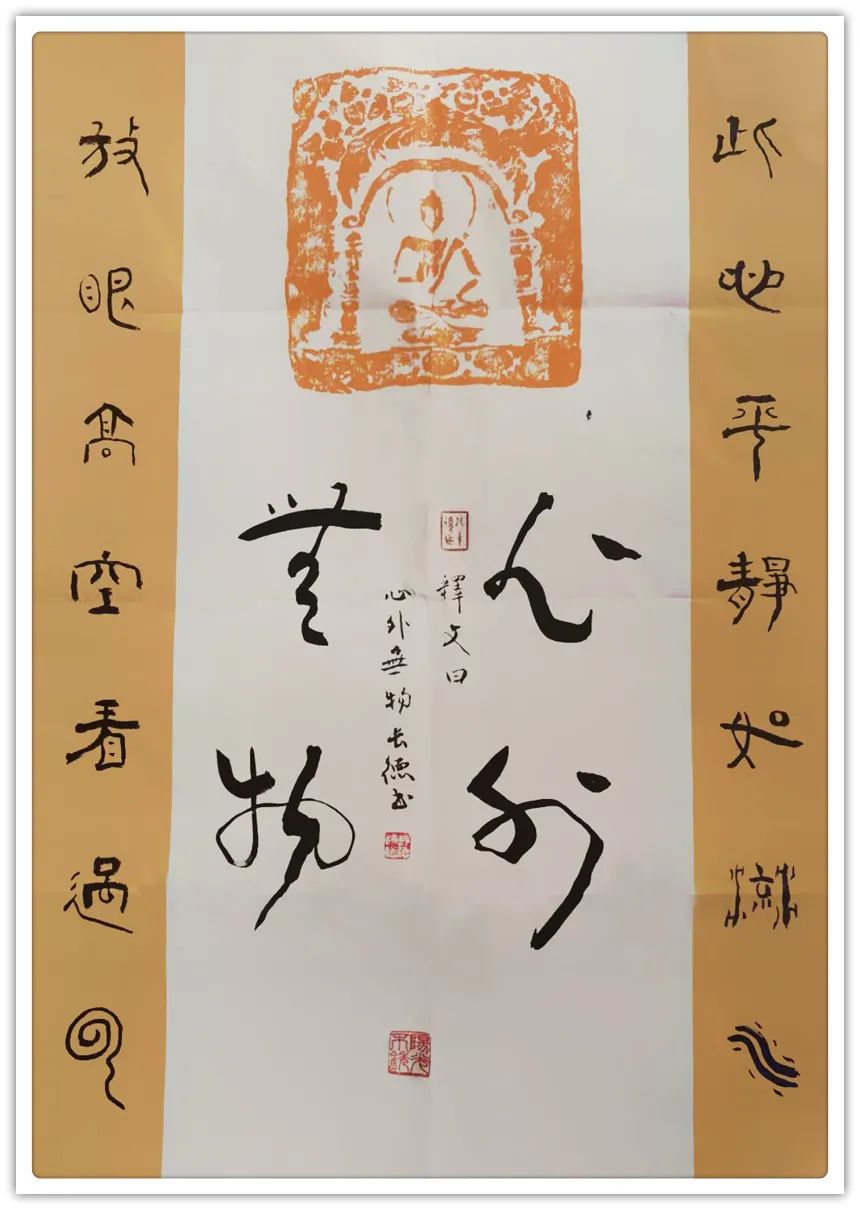 此心平靜如流水
心外
釋文曰
心外無物长德书
無物
放眼高空看過云